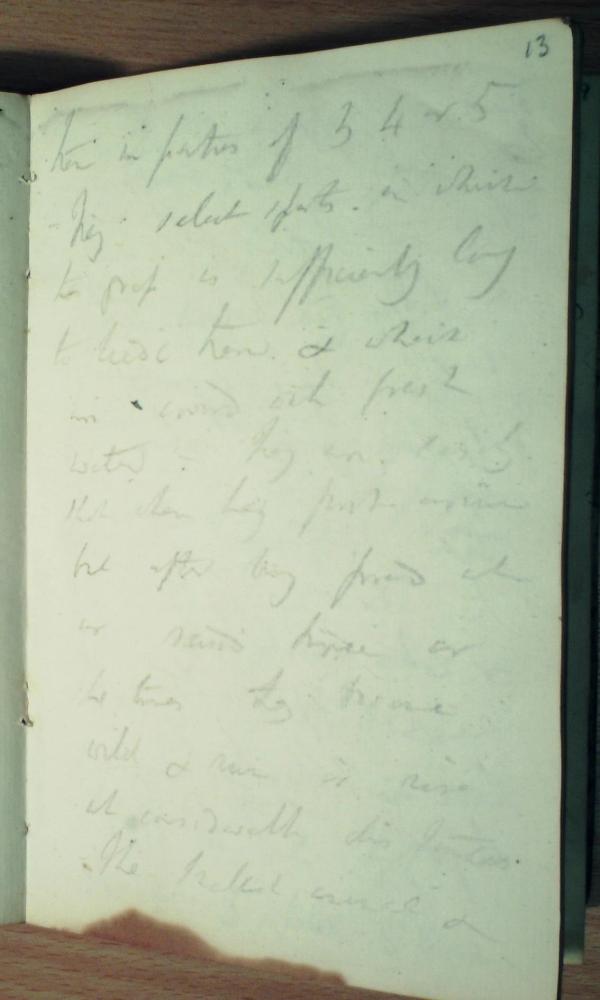 13
in parties of 3 4 or 5
They select spots in which
is sufficiently long
to hide them & which
is covered with fresh
water - They are easily
shot when they first arrive
but after being fired at
or raised twice or
times they become
wild & run or rise
at considerable distances.
The &